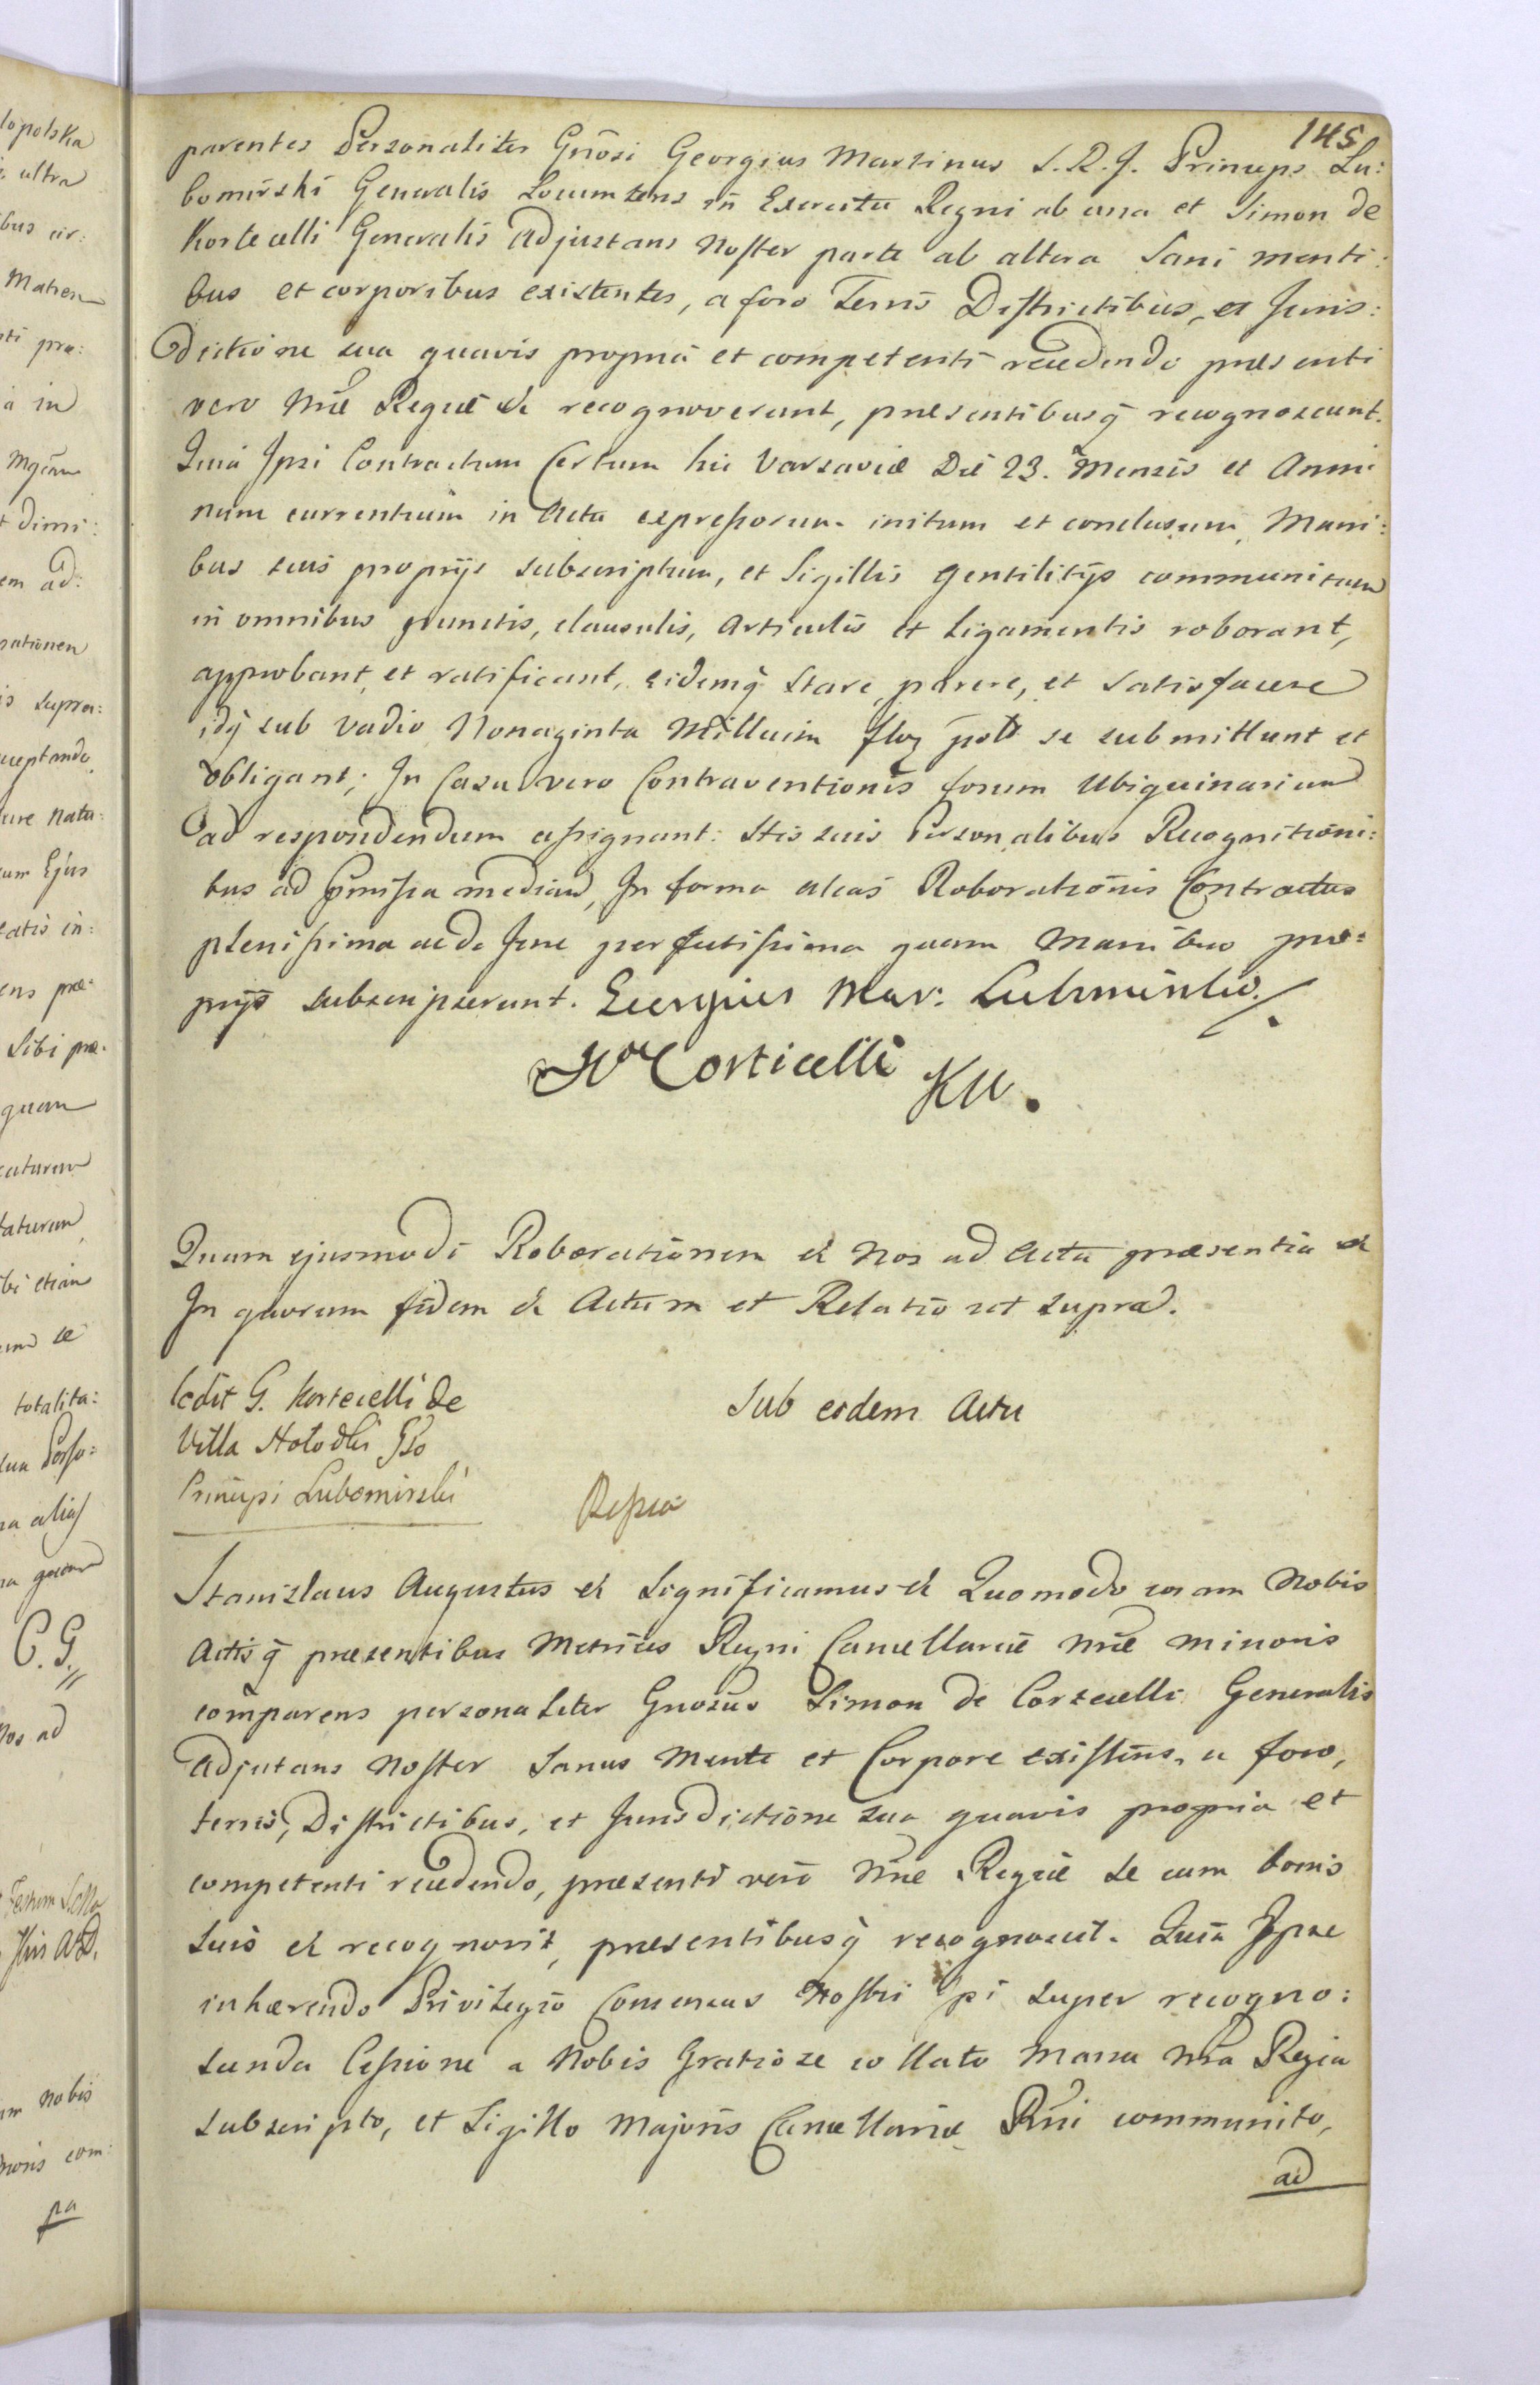 145
parentes Personaliter Gnosi Georgius Martinus S. R. J. Princeps Lu:
bomirski Generalis Locumtens in Exercitu Regni ab una et Simon de
Kortecelli Generalis Adjustans Noster parte ab altera Sani menti:
bus et corporibus existentes, a foro Terris Districtibus, et Juris:
dictione sua quavis propria et competenti recedendo praesenti
vero Nrae Regiae & recognoverunt, praesentibusq recognoscunt.
Quia Ipsi Contractum Certum hic Varsaviae Die 23. Mensis et Anni
nunc currentium in Actu expressorum initum et conclusum, Mani:
bus suis proprijs subscriptum, et Sigillis gentilitijs communitum
in omnibus punctis, clausulis, Articulis et Ligamentis roborant,
approbant, et ratificant, eidemq stare, parere, et satisfacere
idq sub vadio Nonaginta Millium flor pol se submittunt et
obligant; In Casu vero Contraventionis forum Ubiquinarium
ad respondendum assignant: Stis suis Personalibus Recognitioni:
bus ad pmissa median, In forma alias Roborationis Contractus
plenissima ac de Jure perfectissima quam Manibus pro:
prijs subscripserunt. Georgius Mar: Lubomirski
Corticelli
Quam ejusmodi Roborationem & Nos ad Acta praesentia &
In quorum fidem & Actum et Relatio ut supra.
Cedit G. Kortecelli de
Villa Hołodki Gso
Principi Lubomirski
Sub eodem Actu
Ressa
Stanislaus Augustus & Significamus & Quomodo coram Nobis
Actisq praesentibus Metrices Regni Cancellariae Nrae Minoris
comparens personaliter Gnosus Simon de Cortecelli Generalis
Adjutans Noster Sanus Mente et Corpore existens, a foro,
terris, Districtibus, et Jurisdictione sua quavis propria et
competenti recedendo, praesenti vero Nrae Regiae se cum bonis
suis & recognovit, praesentibusq recognoscit. Quia Ipse
inhaerendo Privilegio Consensus Nostri pi super recogno:
scenda Cessione a Nobis Gratiose collato Manu Nra Regia
subscripto, et Sigillo Majoris Cancellariae Rni communito,
ad